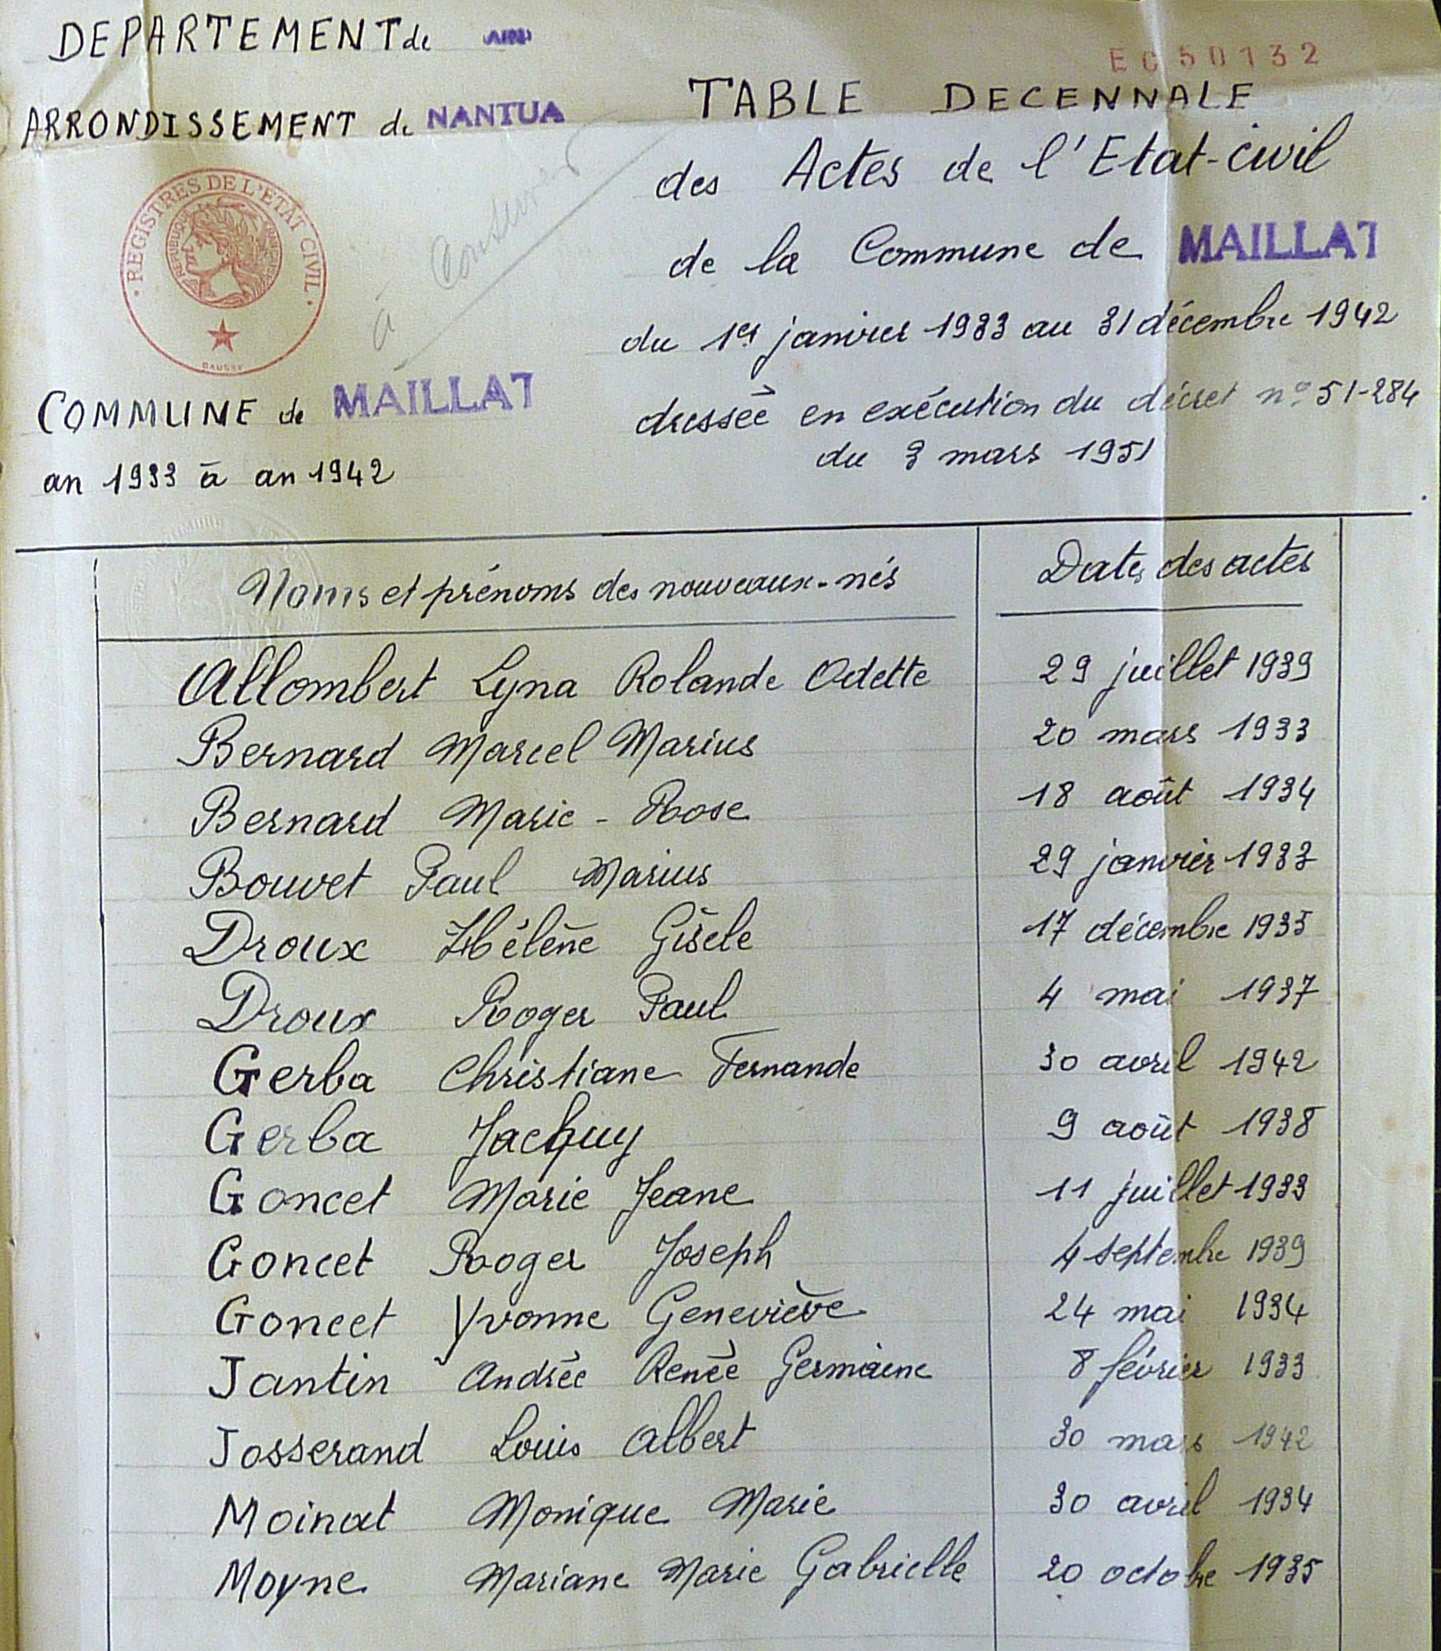 DEPARTEMENT de AIN
EC50132
ARRONDISSEMENT de NANTUA
TABLE DECENNALE
des Actes de l'Etat-civil
de la Commune de MAILLAT
du 1er janvier 1933 au 31 décembre 1942
dressée en exécution du décret n° 51-284
du 3 mars 1951
à conserver
REGISTRES DE L'ÉTAT CIVIL
REPUBLIQUE FRANÇAISE
COMMUNE de MAILLAT
an 1933 à an 1942
Noms et prénoms des nouveaux-nés Dates des actes
Allombert Lyna Rolande Odette 29 juillet 1939
Bernard Marcel Marius 20 mars 1933
Bernard Marie-Rose 18 août 1934
Bouvet Paul Marius 29 janvier 1933
Droux Hélène Gisèle 17 décembre 1935
Droux Roger Paul 4 mai 1937
Gerba Christiane Fernande 30 avril 1942
Gerba Jacquy 9 août 1938
Goncet Marie Jeane 11 juillet 1933
Goncet Roger Joseph 4 septembre 1939
Goncet Yvonne Geneviève 24 mai 1934
Jantin Andrée Renée Germaine 8 février 1933
Josserand Louis Albert 30 mars 1942
Moinat Monique Marie 30 avril 1934
Moyne Mariane Marie Gabrielle 20 octobre 1935